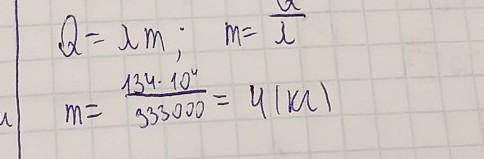 Q = λm; m = Q/λ
m = 134·10⁴/333000 = 4 (кг)